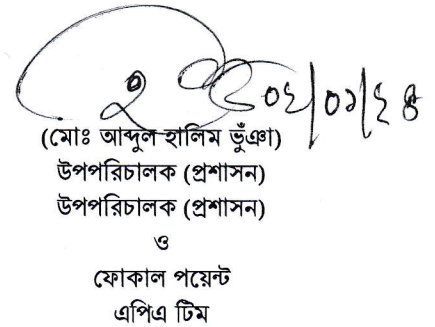 ০২/০১/২৪
(মোঃ আব্দুল হালিম ভুঁঞা)
উপপরিচালক (প্রশাসন)
উপপরিচালক (প্রশাসন)
ও
ফোকাল পয়েন্ট
এপিএ টিম